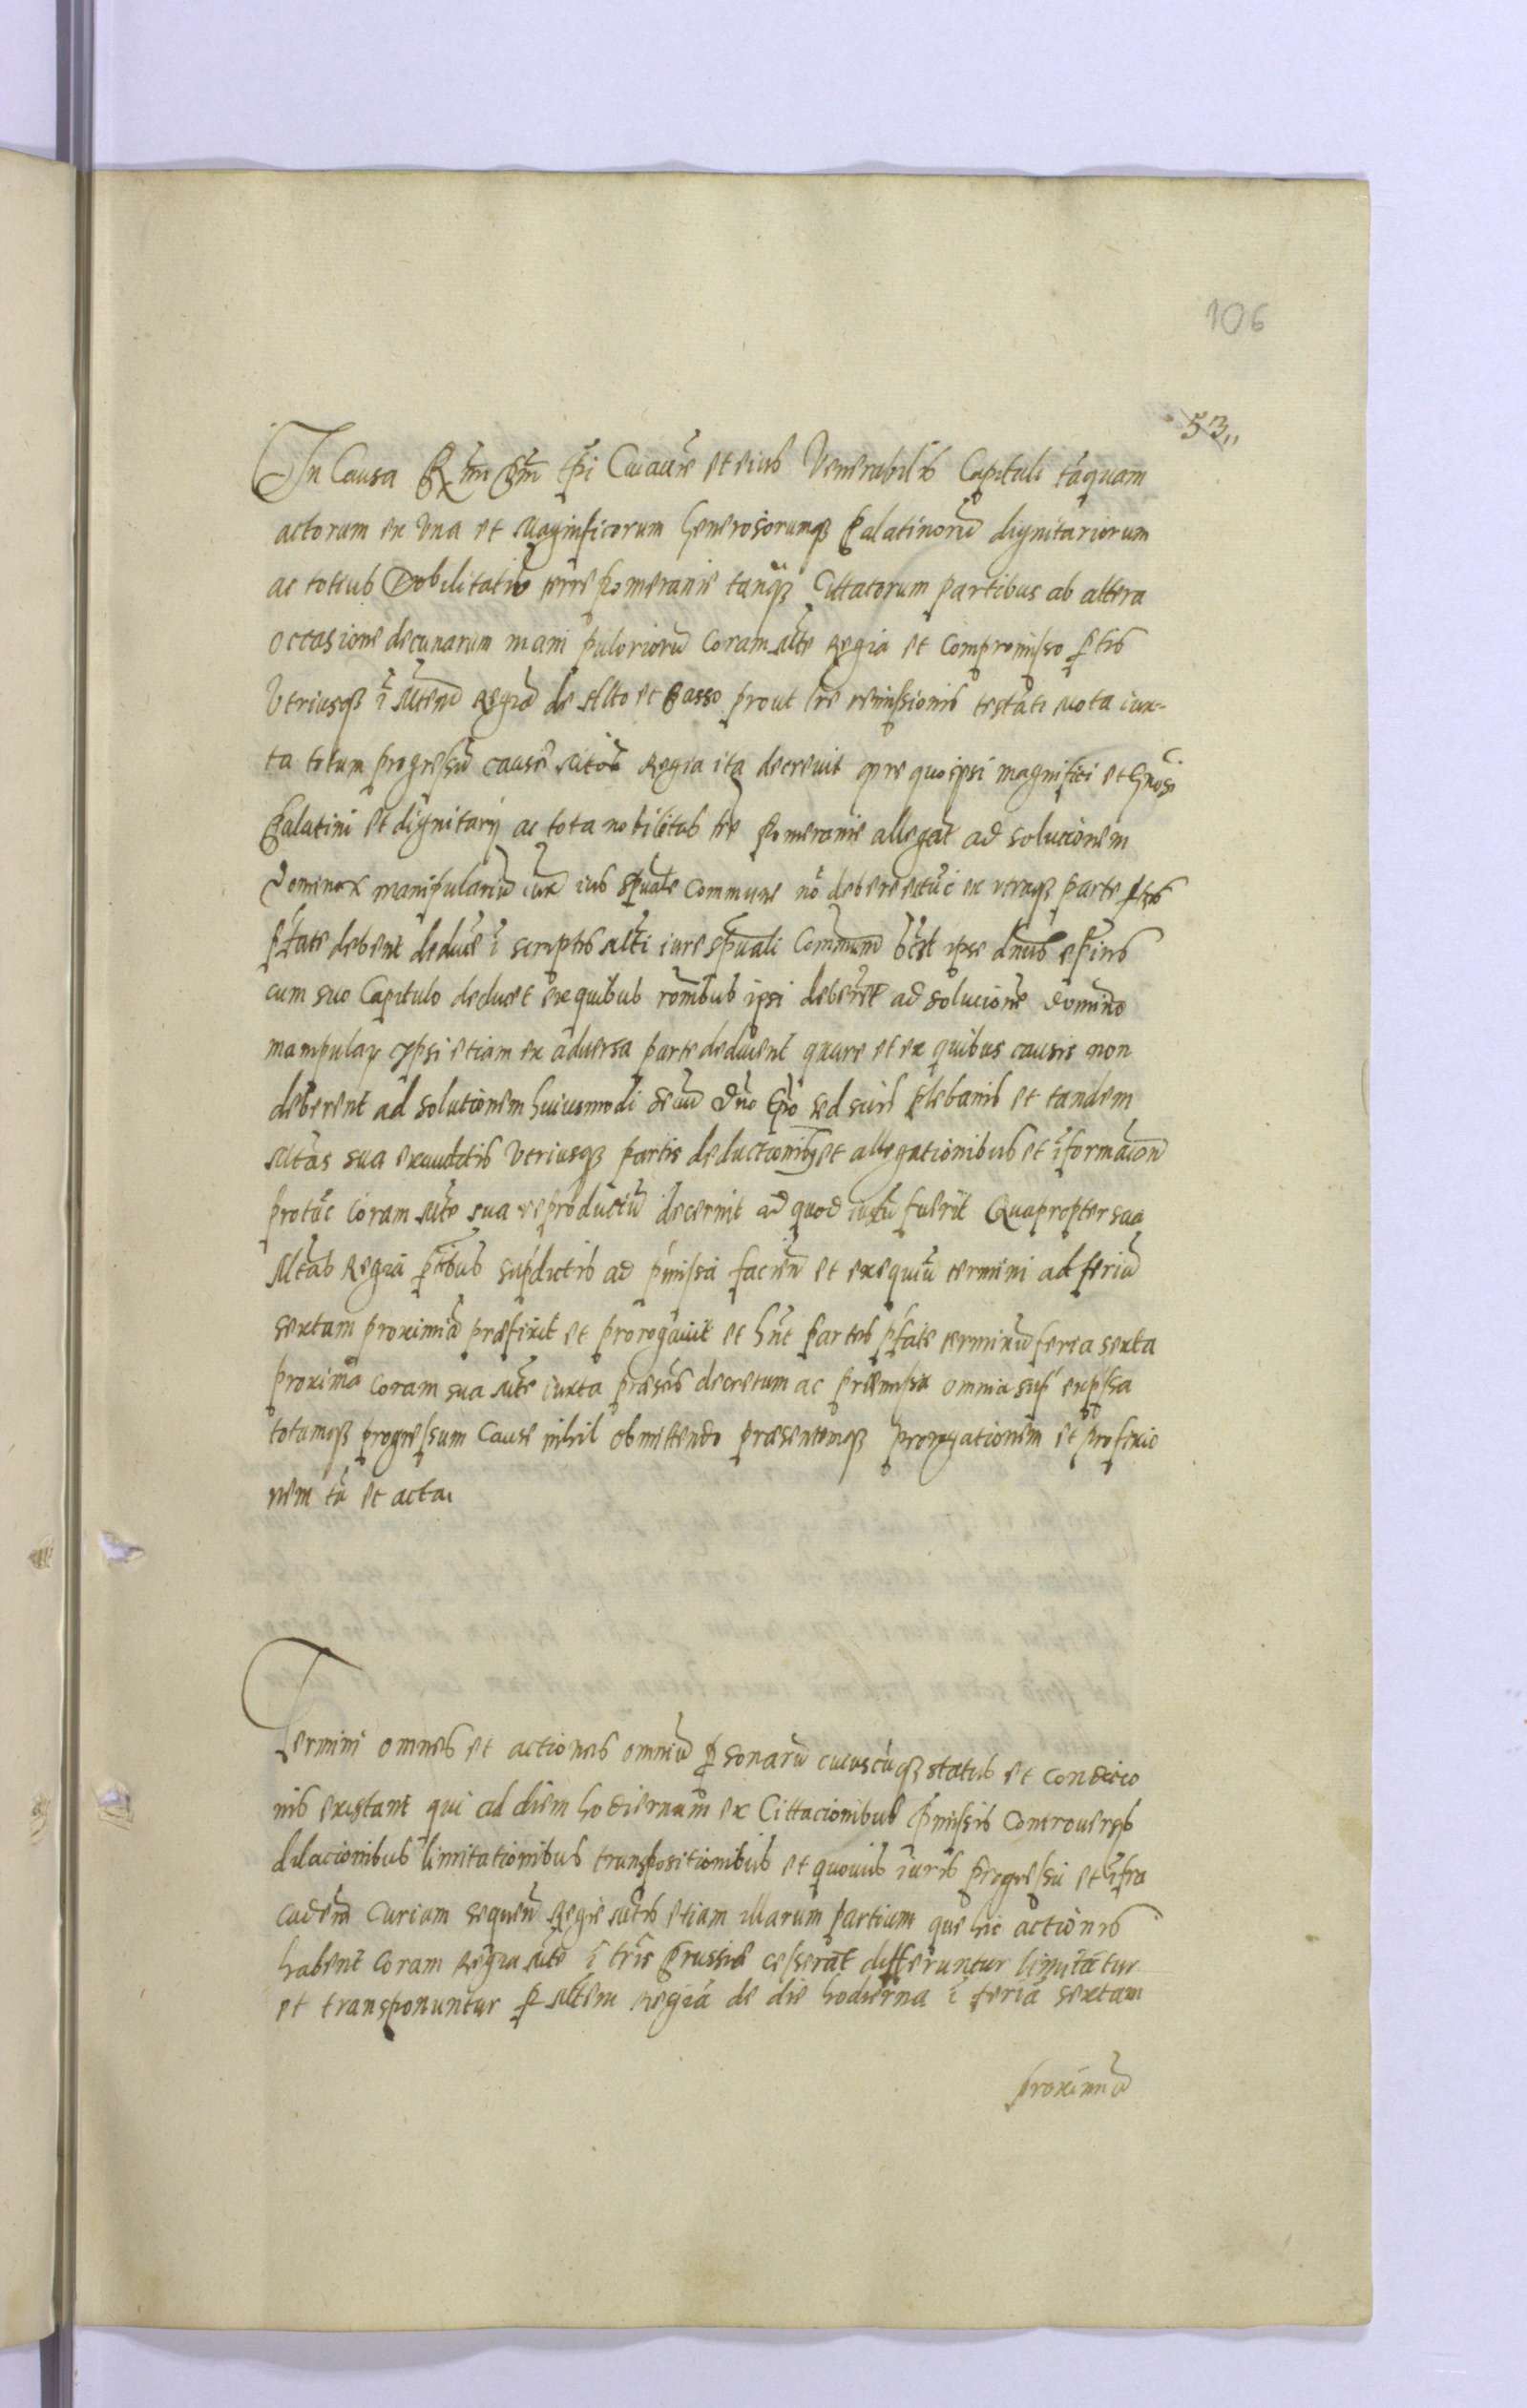 106
53,,
In Causa Rmi Dni Epi Cuiauie et eius Venerabilis Capituli tāquam
actorum ex Vna et Magnificorum Generosorumqȝ Palatinorū dignitariorum
ac totius Nobilitatis terre Pomeranie tanqȝ Cittatorum partibus ab altera
occasione decimarum mani puloriorū coram Mte Regia et compromisso ptis
Vtriusqȝ ī Mtem Regiā de Alto et Basso prout lre remissionis testāti mota iux-
ta totum progressū cause Mtas Regia ita decreuit qre quo ipsi magnifici et Gnosi
Palatini et dignitarij ac tota nobilitas tre Pomeranie allegāt ad solucionem
manipulariū iux ius spuale commune nō debere extūc ex vtraqȝ parte
pfate debent deducere ī scriptis iure spuali ipse dnus epius
cum suo Capitulo deducet ex quibus rōnibus ipsi deberēt ad solucionē
manipular ipsi etiam ex aduersa parte deducent quare et ex quibus causis non
deberent ad solutionem huiusmodi Dno Epo sed suis plebanis et tandem
Mtas sua exauditis Vtriusqȝ partis deductionibȝ et allegationibus et īformacion
protūc coram Mte sua reproductū decernit ad quod iustū fuerit Quapropter sua
Mtas Regia ptibus supdictis ad pmissa faciēn et exequēn termini ad feriā
sextam proximā præfixit et prorogauit et hnt partes pfate terminū feria sexta
proxima coram sua Mte iuxta præsēs decretum ac præmissa omnia sup expssa
totumqȝ progressum cause nihil obmittendo præsentemqȝ prorogationem et præfixio
nem tā et acta.
Termini omnes et actiones omniū psonarū cuiuscūqȝ status et condicio
nis existant qui ad diem hodiernum ex Cittacionibus pmissis controuersis
dilacionibus limitationibus transpositionibus et quouis iuris progressu et īfra
eadem Curiam sequēn Regie Mtis etiam illarum partium que hic actiones
habent coram Regia Mte ī tris Prussie cesserāt differuntur limitātur
et transponuntur p Mtem Regiā de die hodierna ī feriā sextam
proximā